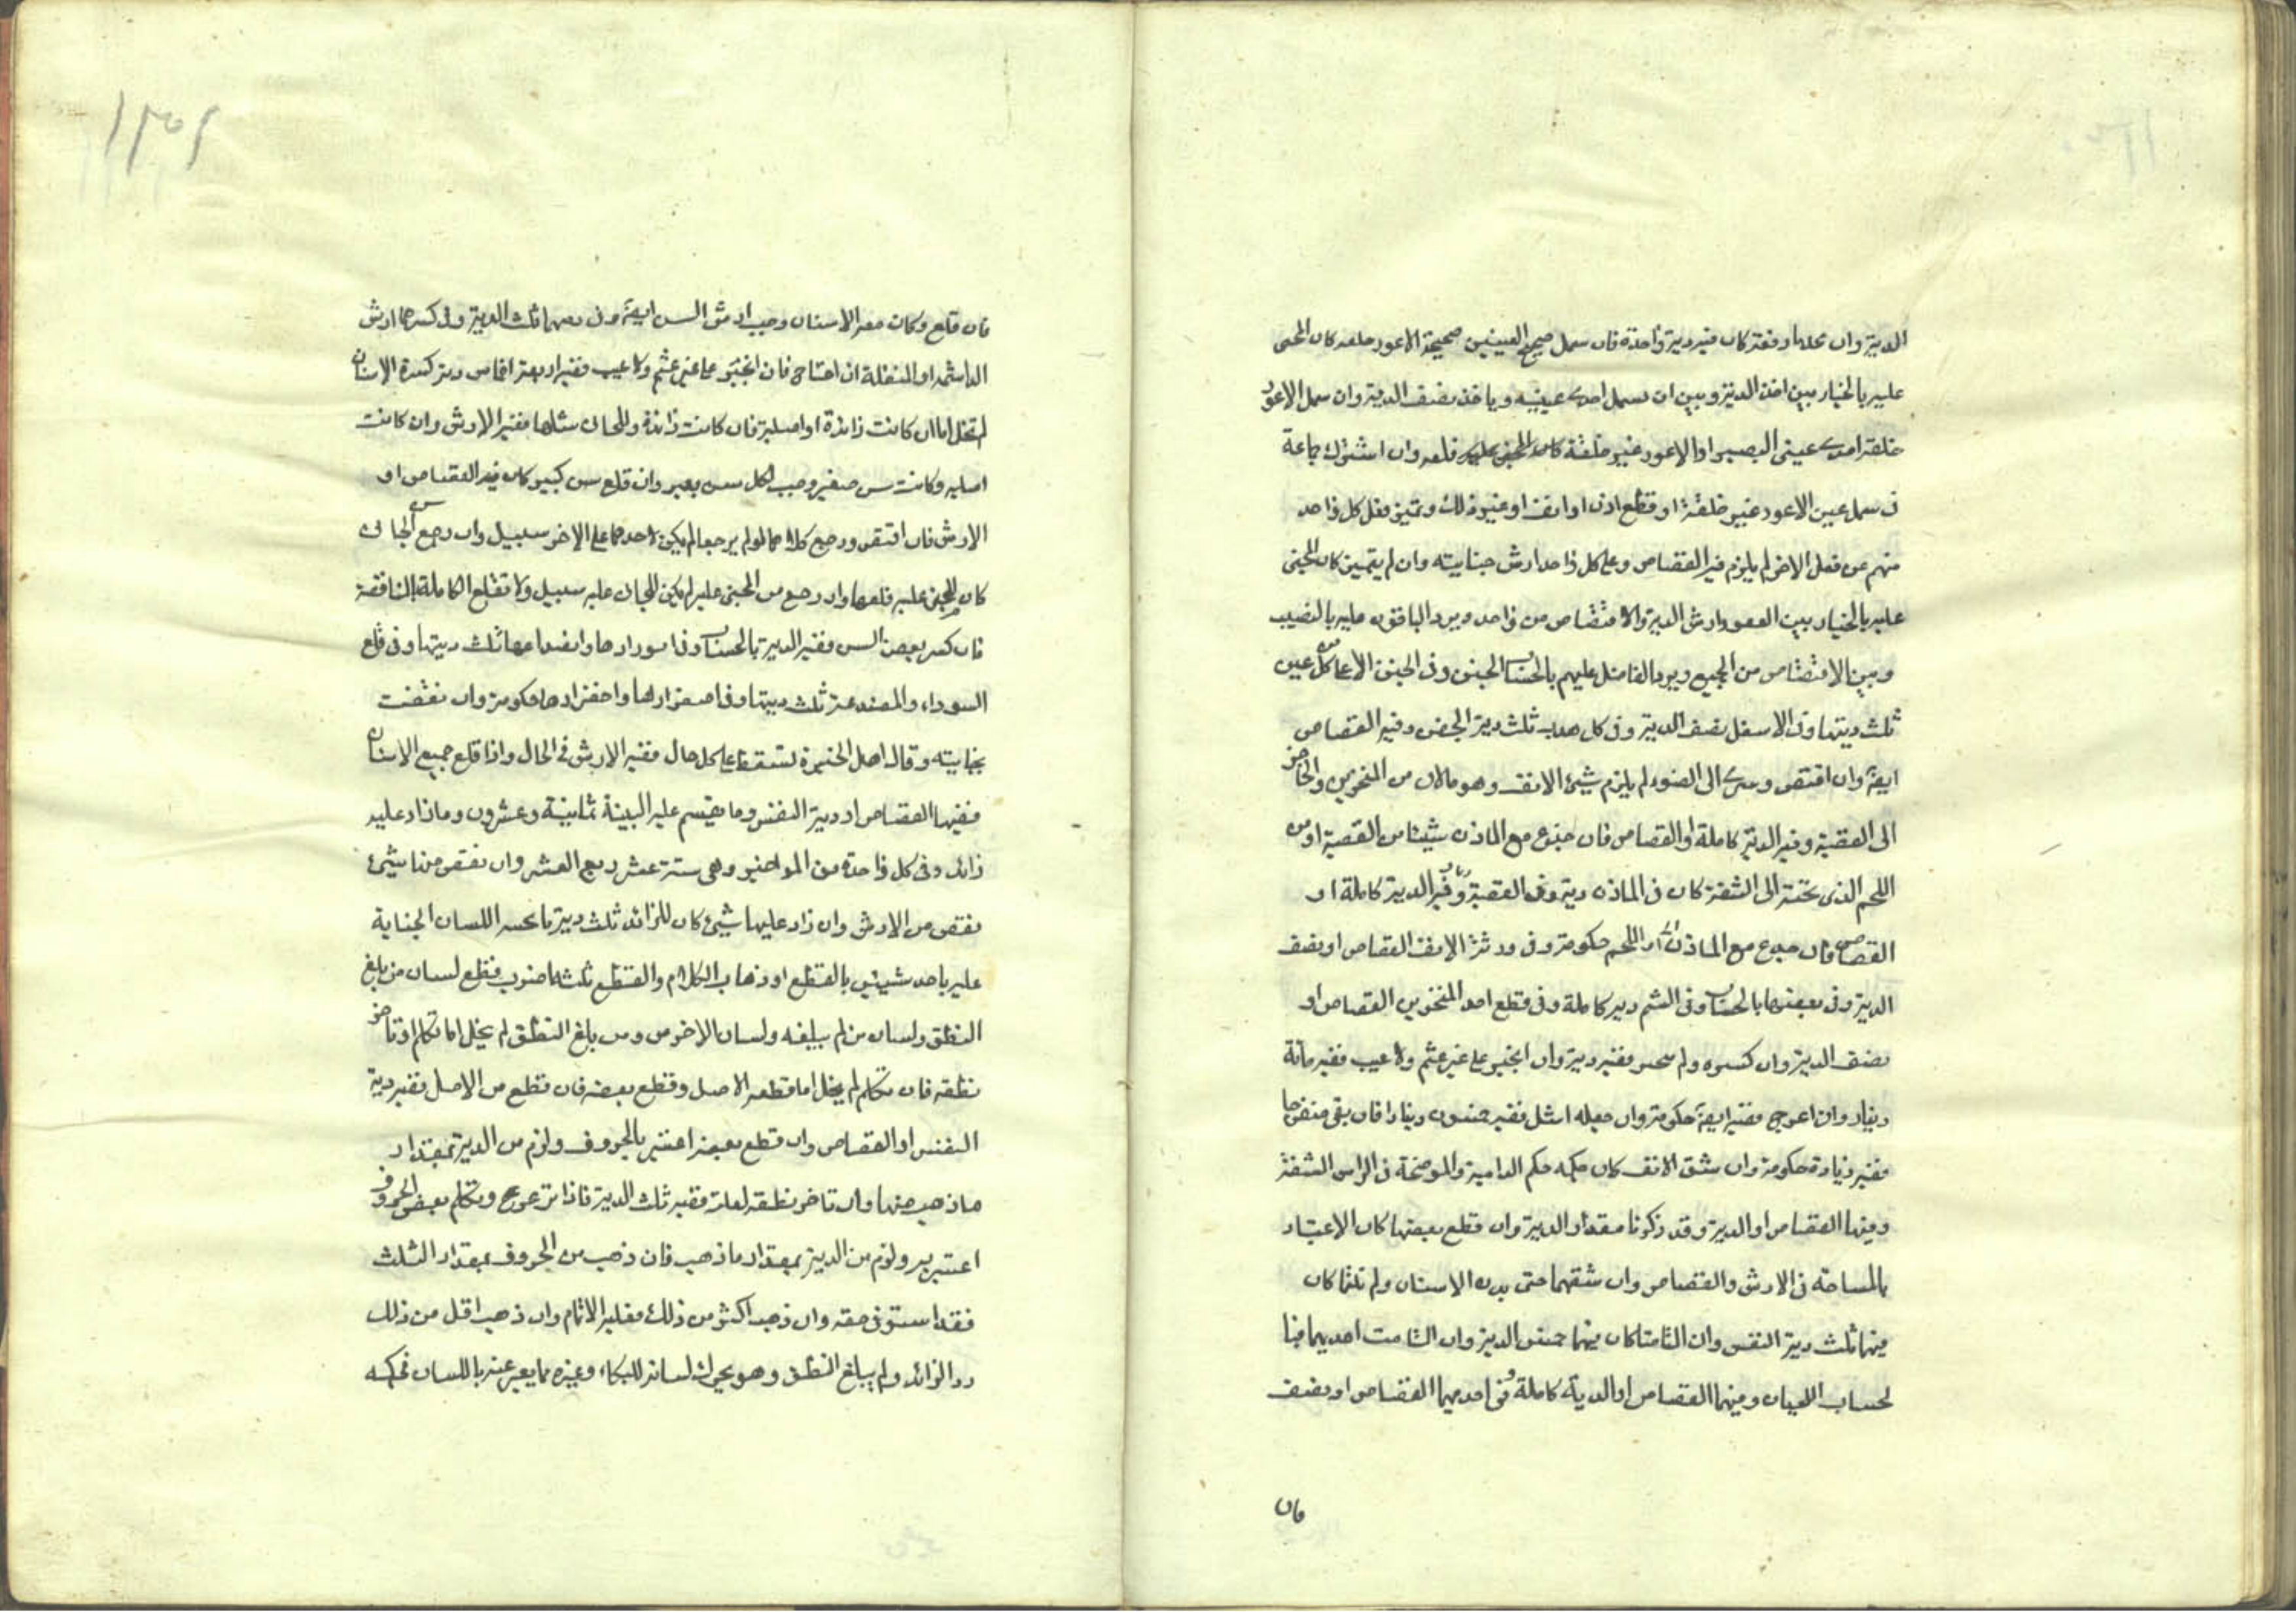 الدية وان عداها دفعة كان فيه دية واحدة فان سمل صحيح العينين صحيحة الاعور خلقه كان المجنى
عليه بالخيار بين اخذ الدية وبين ان يسمل احدى عينيه وياخذ نصف الدية وان سمل الاعور
خلقة احدى عينى البصير او الاعور غير خلقة كان المجنى عليه قلعه وان اشترك جماعة
فى سمل عين الاعور غير خلقة او قطع اذن او انف او غير ذلك وتميز فعل كل واحد
منهم عن فعل الاخر لم يلزم فيه القصاص وعلى كل واحد ارش جنايته وان لم يتميز كان المجنى
عليه بالخيار بين العفو وارش الدية والاقتصاص من واحد ويرد الباقون عليه بالنصيب
وبين الاقتصاص من الجميع ويرد الفاضل عليهم بالحساب الجفن وفى الجفن الاعلى من كل عين
ثلث ديتها وفى الاسفل نصف الدية وفى كل هدب ثلث دية الجفن وفيه القصاص
ايضا وان اقتص وسرى الى الضوء لم يلزم شيئ الانف وهو مالان من المنخرين والحاجز
الى القصبة وفيه الدية كاملة او القصاص فان جدع مع المارن شيئا من القصبة او من
اللحم الذى تحته الى الشفة كان فى المارن دية وفى القصبة وفيه الدية كاملة او
القصاص فان جدع مع المارن او اللحم حكومة وفى روثة الانف القصاص او نصف
الدية وفى بعضها بالحساب وفى الشم دية كاملة وفى قطع احد المنخرين القصاص او
نصف الدية وان كسره ولم ينجبر ففيه دية وان انجبر على غير عثم ولا عيب ففيه مائة
دينار وان اعوج ففيه ايضا حكومة وان جعله اشل ففيه خمسون دينارا فان بقى منفرجا
ففيه زيادة حكومة وان شق الانف كان حكمه حكم الدامية والموضحة فى الراس الشفة
وفيها القصاص او الدية وقد ذكرنا مقدار الدية وان قطع بعضها كان الاعتبار
بالمساحة فى الارش والقصاص وان شقهما حتى بدت الاسنان ولم تلتئما كان
فيهما ثلث دية النفس وان التأمتا كان فيهما خمس الدية وان التأمت احديهما فبا
لحساب اللحيان وفيهما القصاص او الدية كاملة وفى احديهما القصاص او نصف
فان
فان قلع وكان معه الاسنان وجب ارش السن ايضا وفى ثلث الدية وفى كسرهما ارش
الهاشمة او المنقلة ان احتاج فان انجبر على غير عثم ولا عيب ففيه اربعة اخماس دية كسره الاسنان
لم تخل اما ان كانت زائدة او اصلية فان كانت زائدة وللجانى مثلها ففيه الارش وان كانت
اصلية وكانت سن صغير وجب لكل سن بعير وان قلع سن كبير كان فيه القصاص او
الارش فان اقتص ورجع كلاهما او لم يرجعا لم يكن لاحدهما على الاخر سبيل وان رجع سن الجانى
كان للمجنى عليه قلعها وان رجع سن المجنى عليه لم يكن للجانى عليه سبيل ولا تقلع الكاملة بالناقصة
فان كسر بعض السن ففيه الدية بالحساب وفى اسودادها وانصداعها ثلث ديتها وفى قلع
السوداء والمنصدعة ثلث ديتها وفى اصفرارها واخضرارها حكومة وان نغضت
بجنايته وقال اهل الخبرة تسقط على كل حال ففيه الارش فى الحال واذا قلع جميع الاسنان
ففيها القصاص او دية النفس وما يقسم عليه الدية ثمانية وعشرون وما زاد عليه
زائد وفى كل واحدة من المواخير وهى ستة عشر ربع العشر وان نقص منها شيئ
نقص من الارش وان زاد عليها شيئ كان للزائد ثلث دية اللسان الجناية
عليه باحد شيئين بالقطع او ذهاب الكلام والقطع ثلثة اضرب قطع لسان من بلغ
النطق ولسان من لم يبلغه ولسان الاخرس ومن بلغ النطق لم يخل اما تكلم او تاخر
نطقه فان تكلم لم يخل اما قطعه الاصل وقطع بعضه فان قطع من الاصل ففيه دية
النفس او القصاص وان قطع بعضه اعتبر بالحروف ولزم من الدية بمقدار
ما ذهب منها وان تاخر نطقه لعلة ففيه ثلث الدية فاذا ترعرع وتكلم ببعض الحروف
اعتبر به ولزم من الدية بمقدار ما ذهب فان ذهب من الحروف بمقدار الثلث
فقد استوفى حقه وان ذهب اكثر من ذلك فعليه الاتمام وان ذهب اقل من ذلك
رد الزائد ولم يبلغ النطق وهو يحرك لسانه للبكاء وغيره مما يعبر عنه باللسان فحكمه